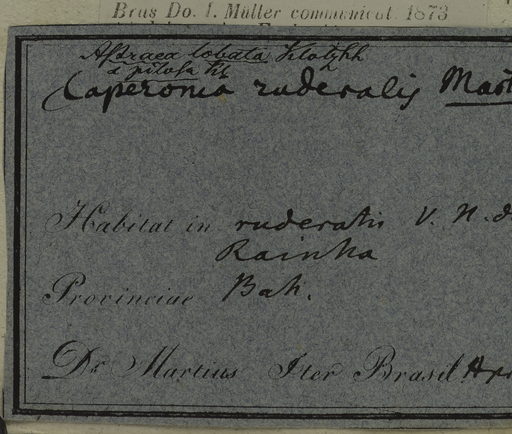 Bras Do. I. Müller communicat. 1873
Astraea lobata Klotzsch
pilosa Kl
Caperonia ruderalis Mart
Habitat in ruderatis V. N. d
Rainha
Provinciae Bah.
Dr Martius Iter Brasil. Apr